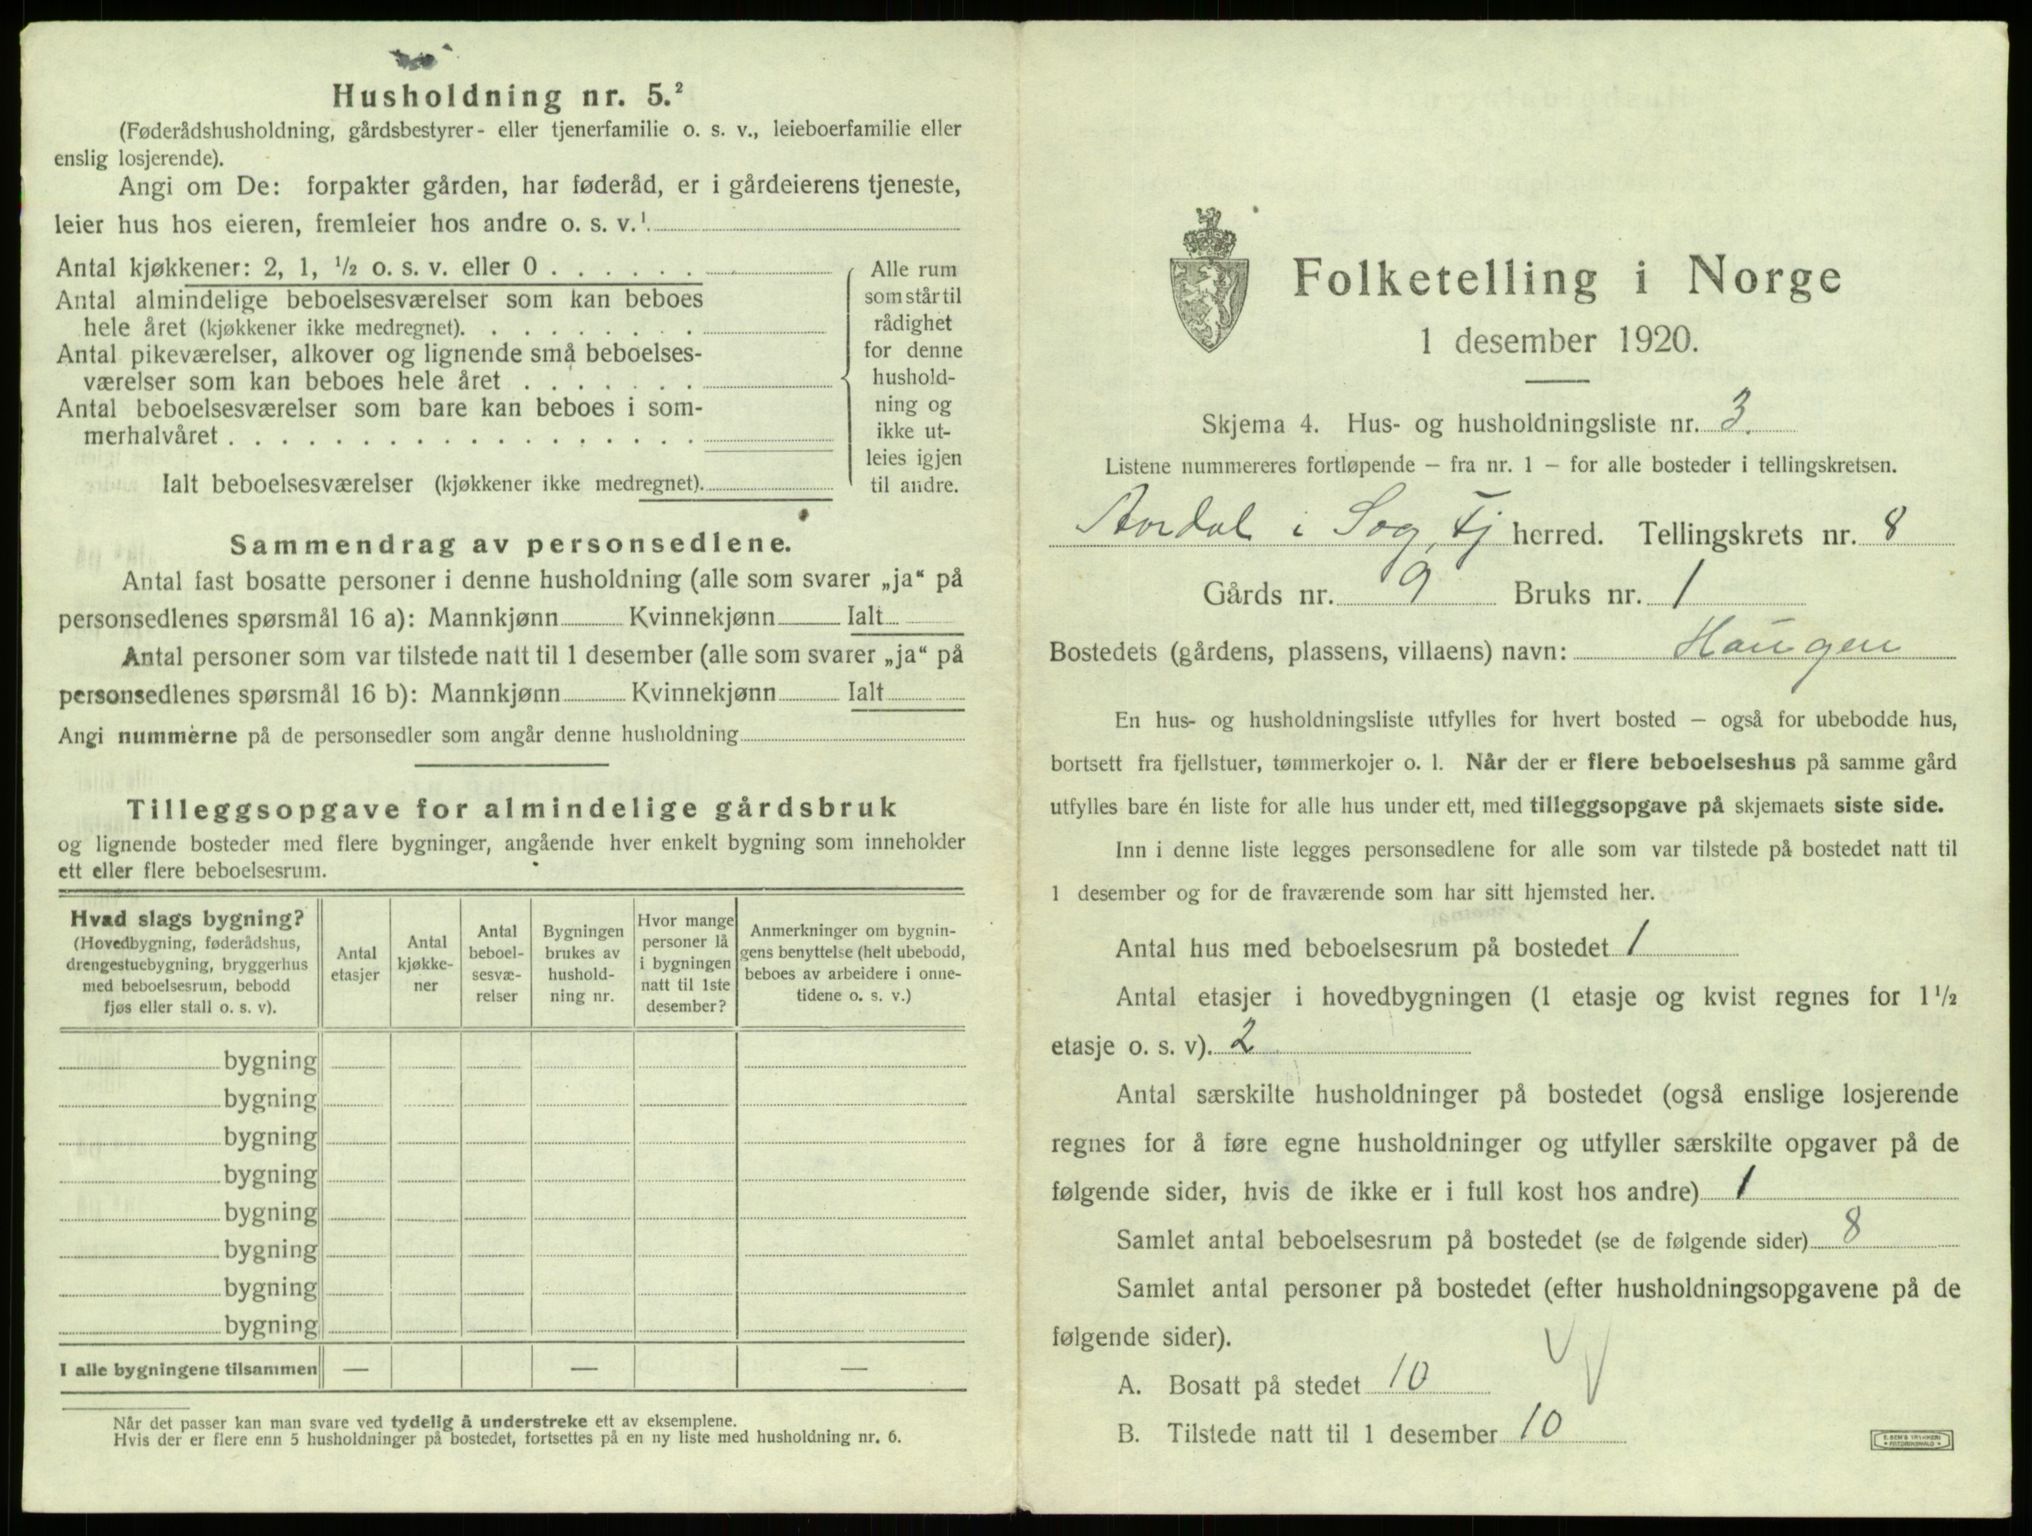 Husholdning nr. 5.²
(Føderådshusholdning, gårdsbestyrer- eller tjenerfamilie o. s. v., leieboerfamilie eller
enslig losjerende).
Angi om De: forpakter gården, har føderåd, er i gårdeierens tjeneste,
leier hus hos eieren, fremleier hos andre o. s. v.¹
Antal kjøkkener: 2, 1, ½ o. s. v. eller 0 . . . . . .
Antal almindelige beboelsesværelser som kan beboes
hele året (kjøkkener ikke medregnet). . . . . . . . .
Antal pikeværelser, alkover og lignende små beboelses-
værelser som kan beboes hele året . . . . . . .
Antal beboelsesværelser som bare kan beboes i som-
merhalvåret . . . . . . . . . . . . . . . . . .
Ialt beboelsesværelser (kjøkkener ikke medregnet).
Alle rum
som står til
rådighet
for denne
hushold-
ning og
ikke ut-
leies igjen
til andre.
Sammendrag av personsedlene.
Antal fast bosatte personer i denne husholdning (alle som svarer „ja“ på
personsedlenes spørsmål 16 a): Mannkjønn Kvinnekjønn Ialt
Antal personer som var tilstede natt til 1 desember (alle som svarer „ja“ på
personsedlenes spørsmål 16 b): Mannkjønn Kvinnekjønn Ialt
Angi nummerne på de personsedler som angår denne husholdning
Tilleggsopgave for almindelige gårdsbruk
og lignende bosteder med flere bygninger, angående hver enkelt bygning som inneholder
ett eller flere beboelsesrum.
Hvad slags bygning?
(Hovedbygning, føderådshus,
drengestuebygning, bryggerhus
med beboelsesrum, bebodd
fjøs eller stall o. s. v).
Antal
etasjer
Antal
kjøkke-
ner
Antal
beboel-
sesvæ-
relser
Bygningen
brukes av
hushold-
ning nr.
Hvor mange
personer lå
i bygningen
natt til 1ste
desember?
Anmerkninger om bygnin-
gens benyttelse (helt ubebodd,
beboes av arbeidere i onne-
tidene o. s. v.)
bygning
bygning
bygning
bygning
bygning
bygning
bygning
bygning
I alle bygningene tilsammen — — —
Når det passer kan man svare ved tydelig å understreke ett av eksemplene.
Hvis der er flere enn 5 husholdninger på bostedet, fortsettes på en ny liste med husholdning nr. 6.
Folketelling i Norge
1 desember 1920.
Skjema 4. Hus- og husholdningsliste nr. 3.
Listene nummereres fortløpende – fra nr. 1 – for alle bosteder i tellingskretsen.
Aordal i Sog, Fj herred. Tellingskrets nr. 8
Gårds nr. 9 Bruks nr. 1
Bostedets (gårdens, plassens, villaens) navn: Haugen
En hus- og husholdningsliste utfylles for hvert bosted – også for ubebodde hus,
bortsett fra fjellstuer, tømmerkojer o. l. Når der er flere beboelseshus på samme gård
utfylles bare én liste for alle hus under ett, med tilleggsopgave på skjemaets siste side.
Inn i denne liste legges personsedlene for alle som var tilstede på bostedet natt til
1 desember og for de fraværende som har sitt hjemsted her.
Antal hus med beboelsesrum på bostedet 1
Antal etasjer i hovedbygningen (1 etasje og kvist regnes for 1½
etasje o. s. v). 2
Antal særskilte husholdninger på bostedet (også enslige losjerende
regnes for å føre egne husholdninger og utfyller særskilte opgaver på de
følgende sider, hvis de ikke er i full kost hos andre) 1
Samlet antal beboelsesrum på bostedet (se de følgende sider) 8
Samlet antal personer på bostedet (efter husholdningsopgavene på de
følgende sider).
A. Bosatt på stedet 10
B. Tilstede natt til 1 desember 10